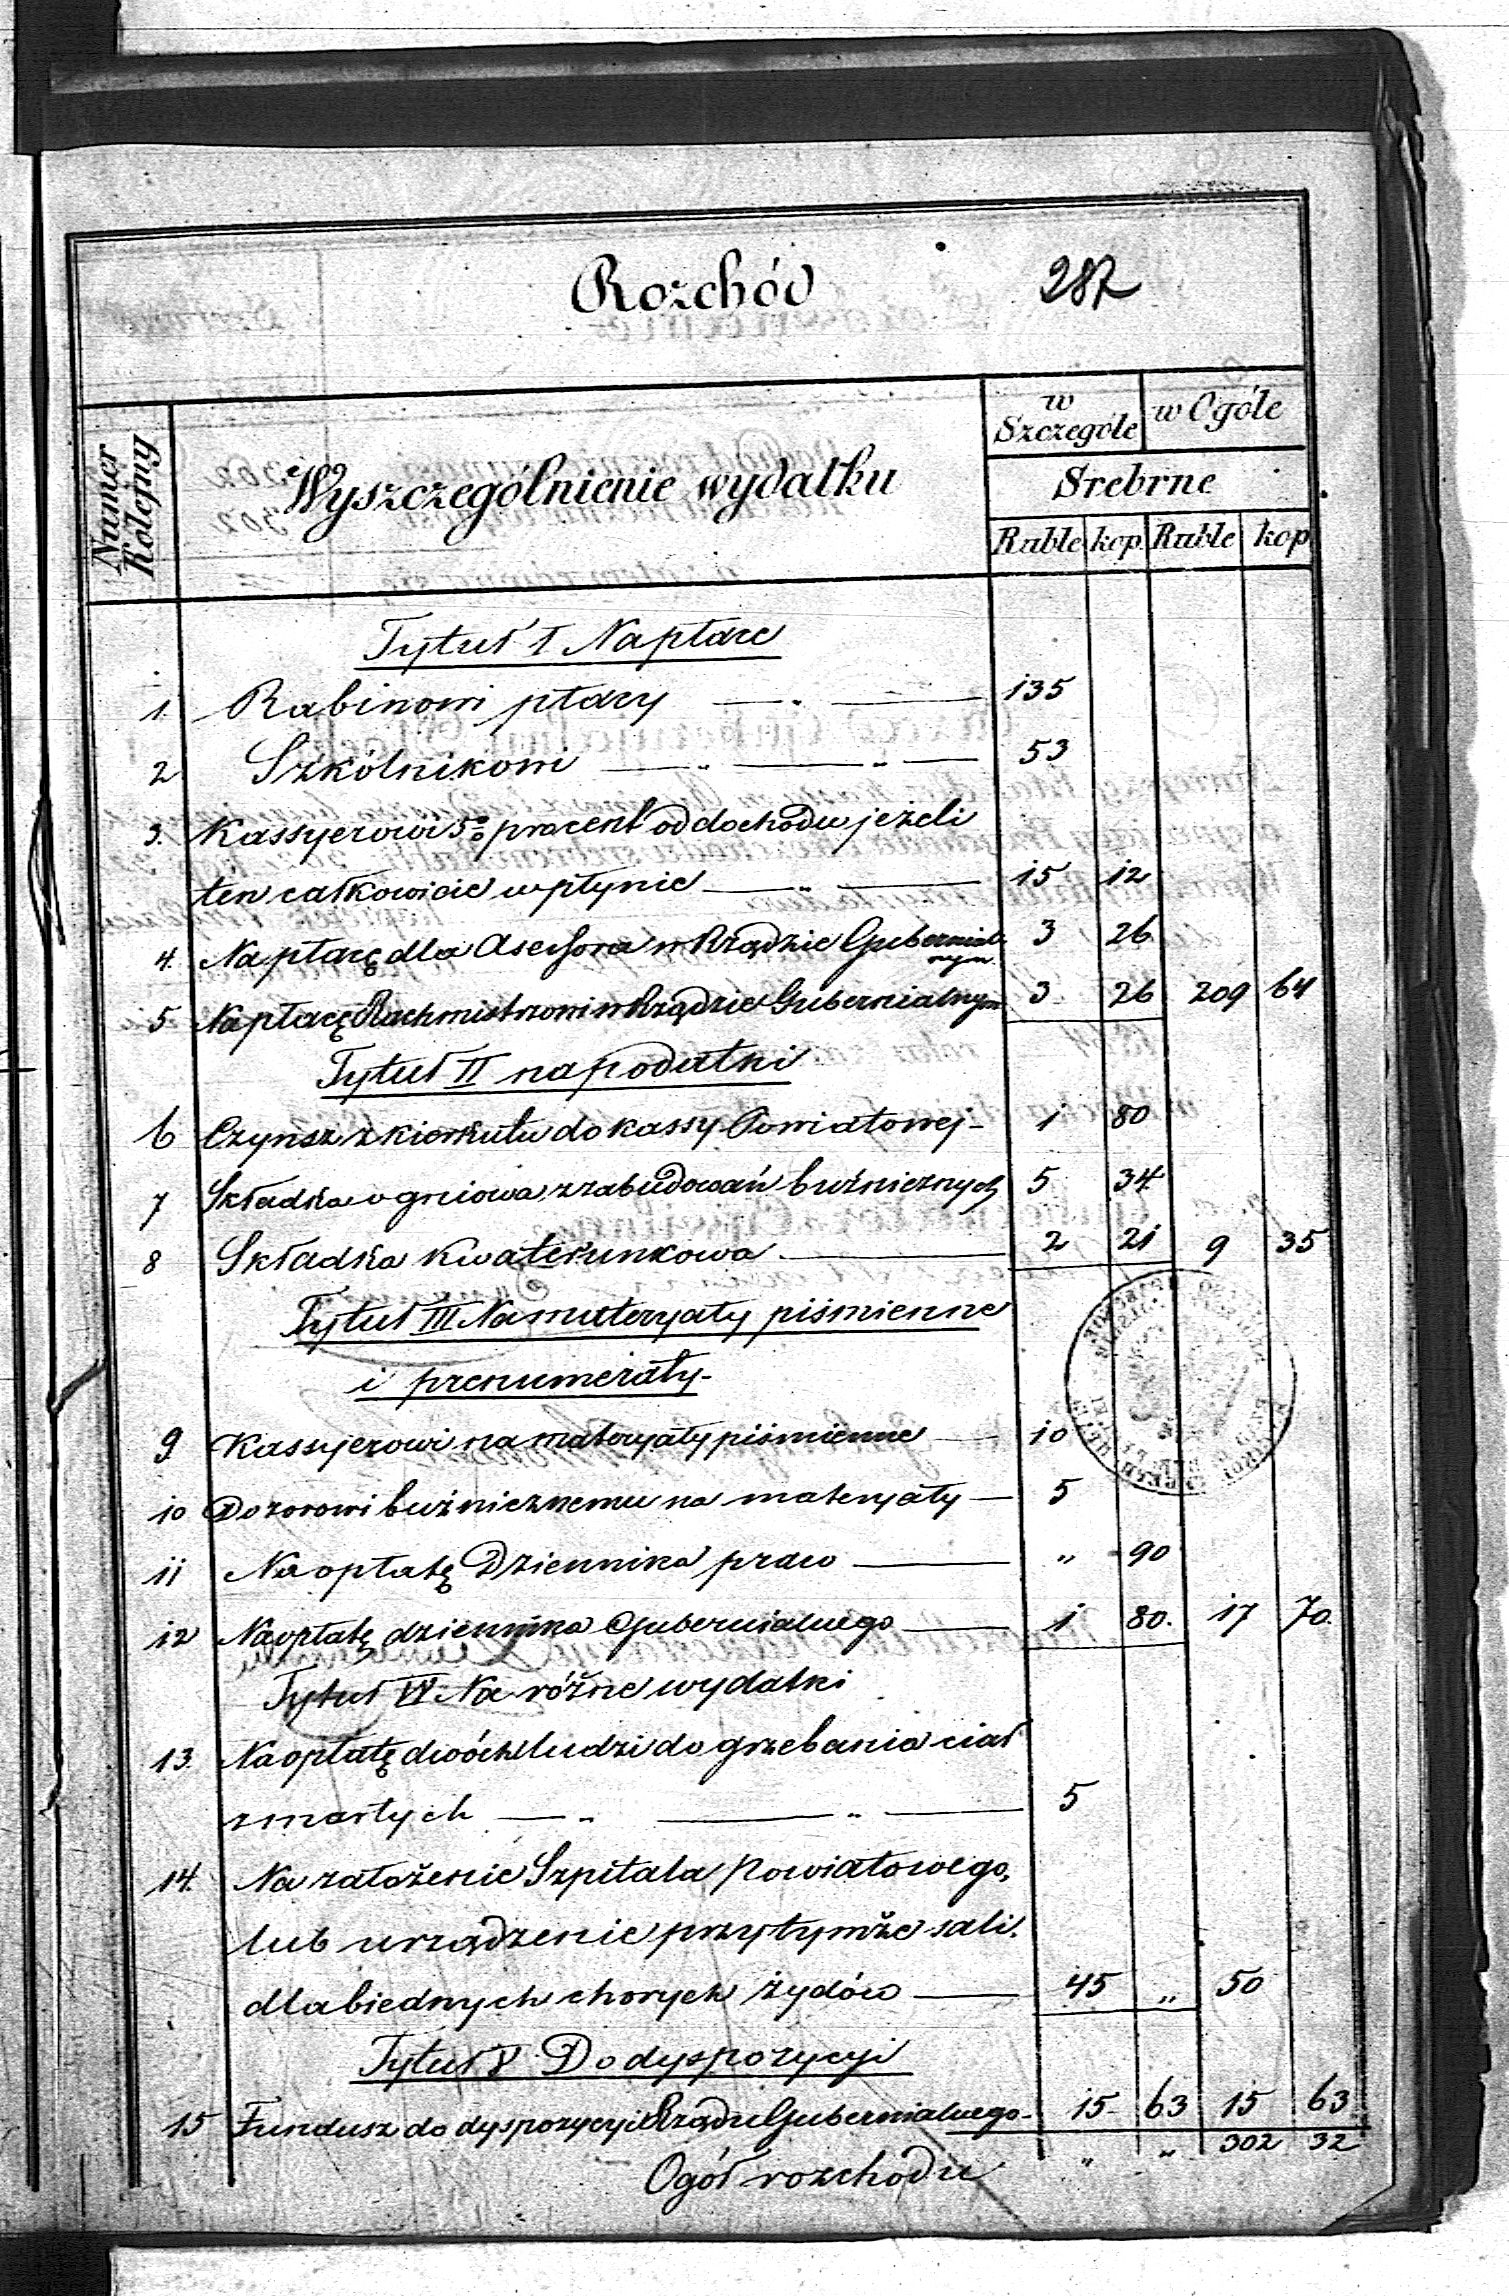 Rozchód 287
Numer Kolejny
Wyszczególnienie wydatku
w Szczególe
w Ogóle
Srebrne
Ruble kop Ruble kop
Tytuł I Na płace
1. Rabinowi płacy — „ — 135
2 Szkólnikowi — „ — „ — 53
3. Kassyerowi 5% procent od dochodu jeżeli
ten całkowicie wpłynie — „ — 15 12
4. Na płacę dla Asessora w Rządzie Gubernial- 3 26
nym.
5 Na płacę Rachmistrzowi w Rządzie Gubernialnym 3 26 209 64
Tytuł II na podatki
6 Czynsz z kierkutu do kassy Powiatowej - 1 80
7 Składka ogniowa z zabudowań bużnicznych 5 34
8 Składka kwaterunkowa — 2 21 9 35
Tytuł III Na materyały piśmienne
i prenumeraty -
9 Kassyerowi na materyały piśmienne — 10
10 Dozorowi bużnicznemu na materyały — 5
11 Na opłatę Dziennika praw — „ 90
12 Na opłatę dziennika Gubernialnego — 1 80. 17 70.
Tytuł IV Na różne wydatki
13. Na opłatę dwóch ludzi do grzebania ciał
zmarłych — „ — „ — 5
14. Na założenie Szpitala Powiatowego,
lub urządzenie przytymże sali
dla biednych chorych żydów — 45 „ 50
Tytuł V Do dyspozycyi
15 Fundusz do dyspozycyi Rządu Gubernialnego - 15 63 15 63
Ogół rozchodu „ „ 302 32